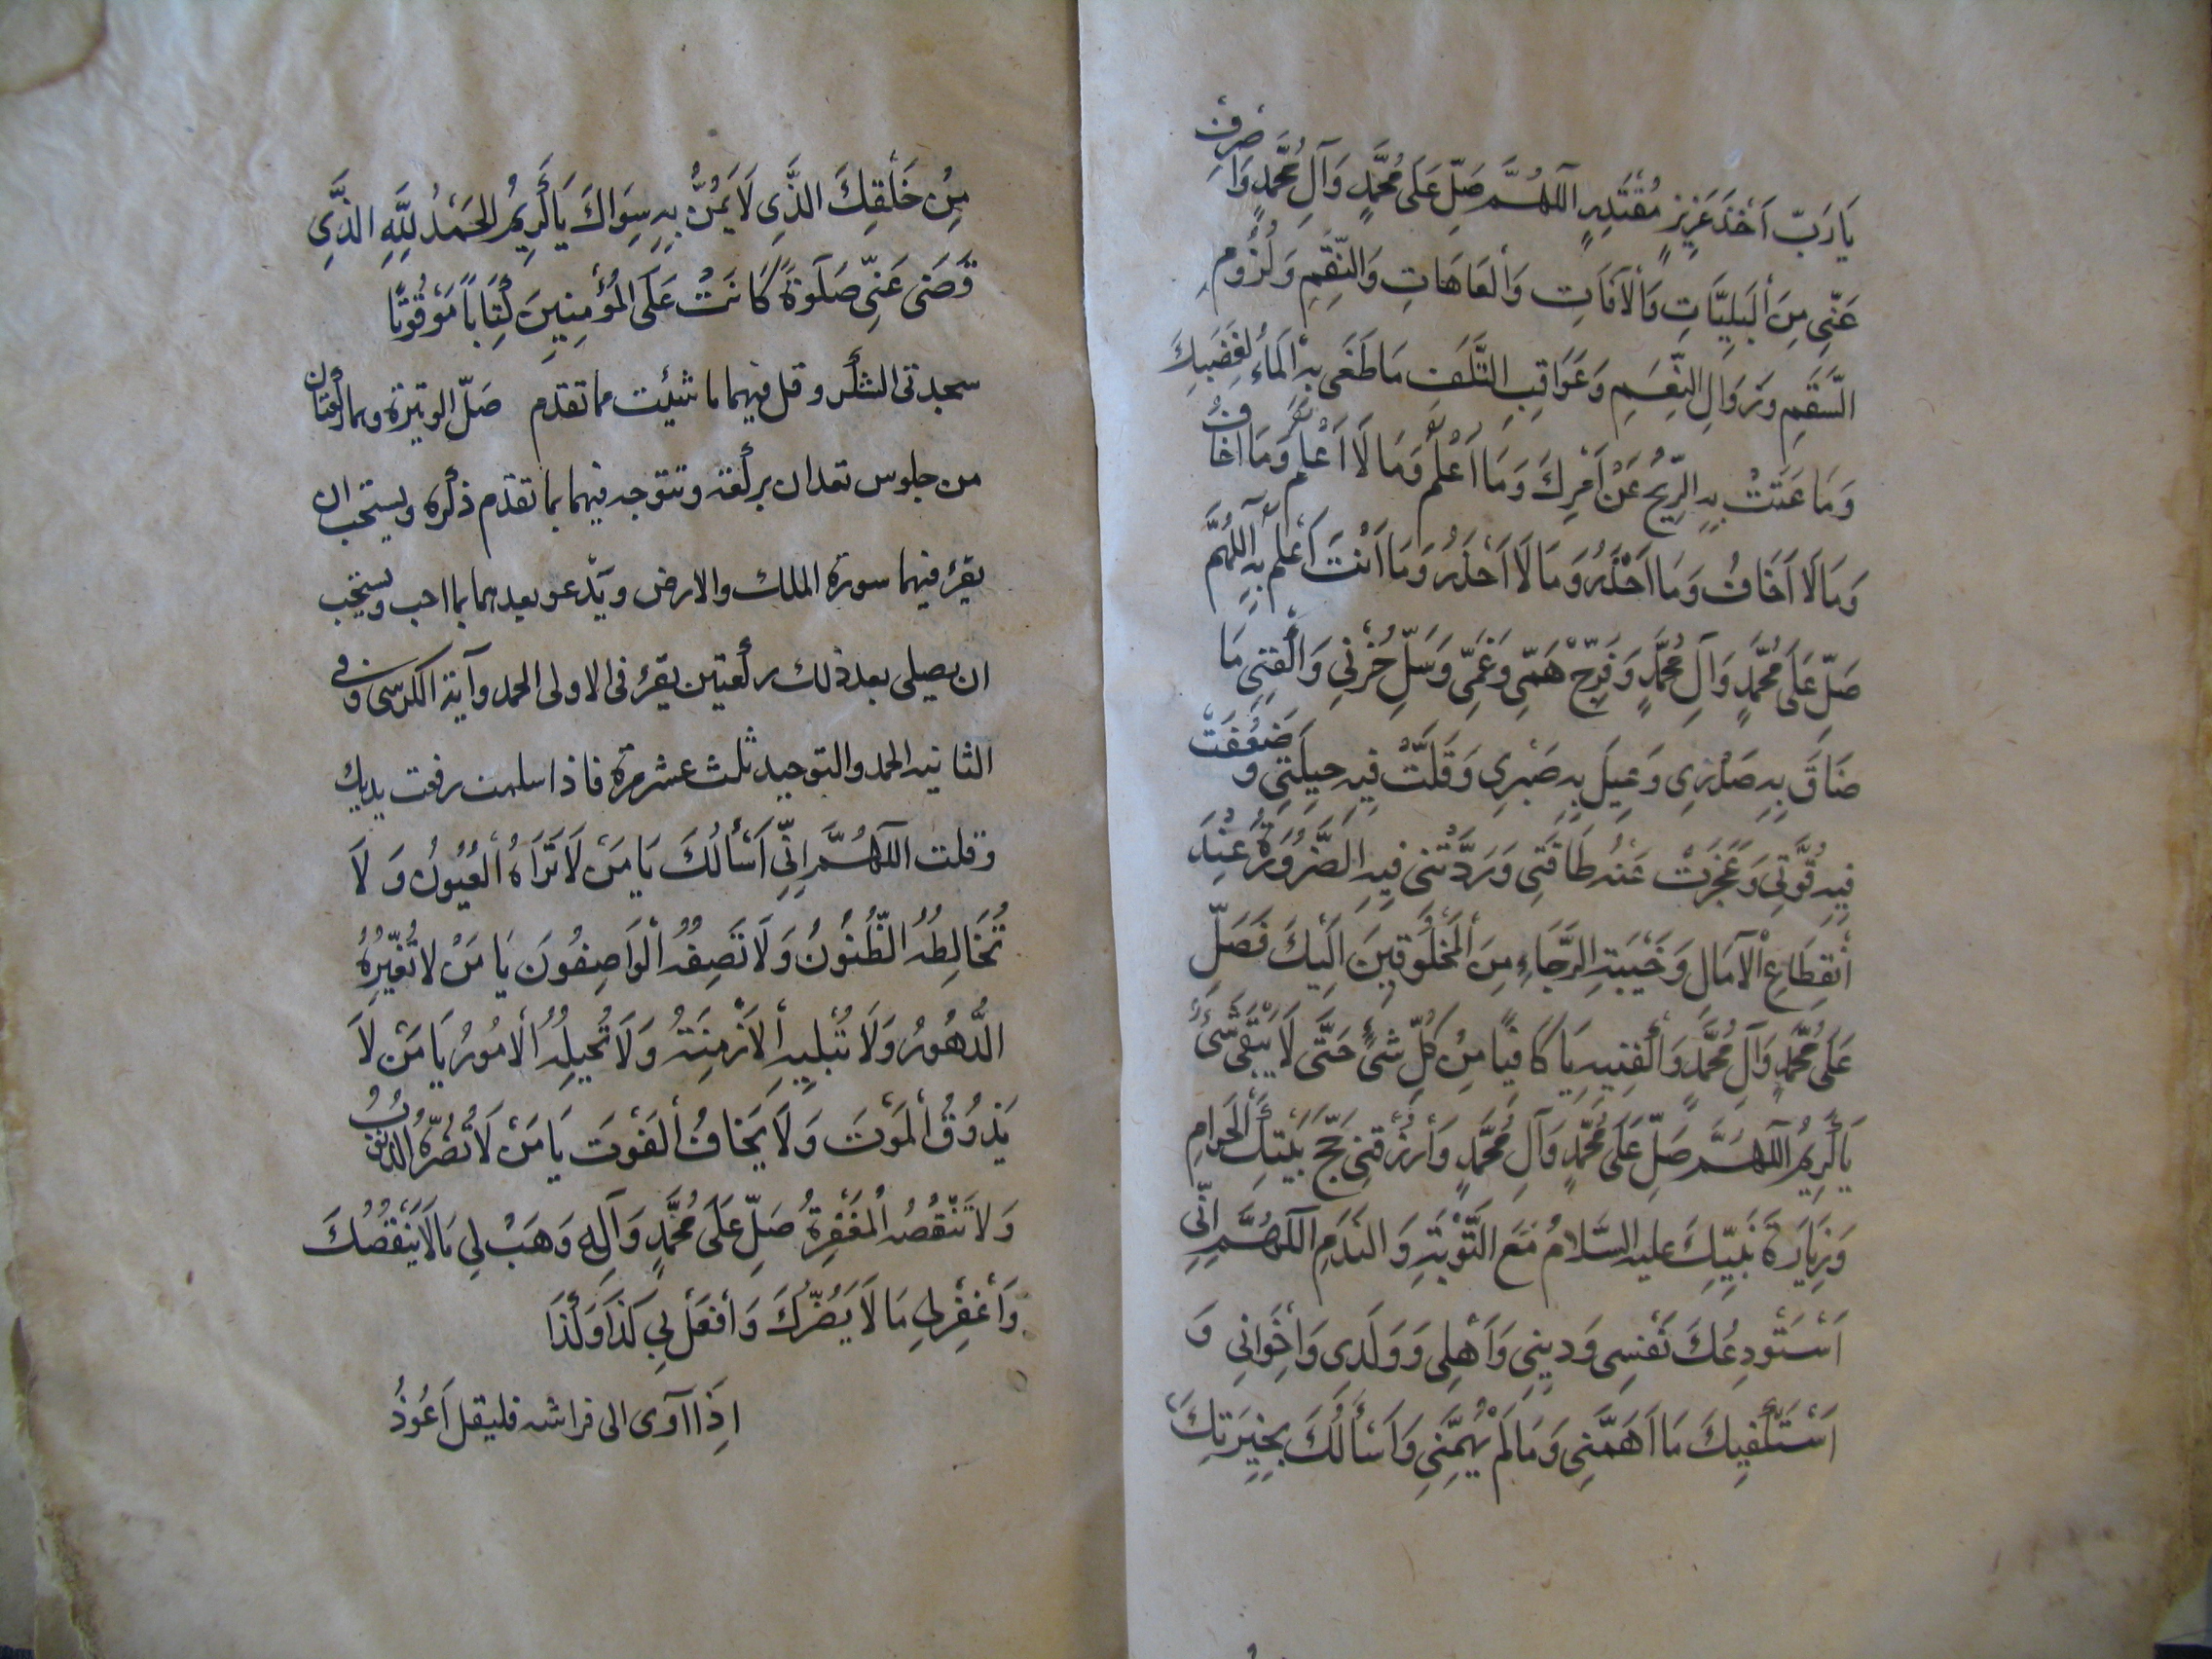 يَا رَبِّ اَخْذَ عَزِيزٍ مُقْتَدِرٍ اَللّهُمَّ صَلِّ عَلَى مُحَمَّدٍ وَآلِ مُحَمَّدٍ وَاصْرِفْ
عَنِّي مِنَ الْبَلِيَّاتِ وَالْآفَاتِ وَالْعَاهَاتِ وَالنِّقَمِ وَلُزُومِ
السَّقَمِ وَزَوَالِ النِّعَمِ وَعَوَاقِبِ التَّلَفِ مَا طَغَى بِهِ الْمَاءُ لِغَضَبِكَ
وَمَا عَتَتْ بِهِ الرِّيحُ عَنْ اَمْرِكَ وَمَا اَعْلَمُ وَمَا لَا اَعْلَمُ وَمَا اَخَافُ
وَمَا لَا اَخَافُ وَمَا اَحْذَرُ وَمَا لَا اَحْذَرُ وَمَا اَنْتَ اَعْلَمُ بِهِ اَللّهُمَّ
صَلِّ عَلَى مُحَمَّدٍ وَآلِ مُحَمَّدٍ وَفَرِّجْ هَمِّي وَغَمِّي وَسَلِّ حُزْنِي وَاكْفِنِي مَا
ضَاقَ بِهِ صَدْرِي وَعِيلَ بِهِ صَبْرِي وَقَلَّتْ فِيهِ حِيلَتِي وَضَعُفَتْ
فِيهِ قُوَّتِي وَعَجَزَتْ عَنْهُ طَاقَتِي وَرَدَّتْنِي فِيهِ الضَّرُورَةُ عِنْدَ
انْقِطَاعِ الْآمَالِ وَخَيْبَةِ الرَّجَاءِ مِنَ الْمَخْلُوقِينَ اِلَيْكَ فَصَلِّ
عَلَى مُحَمَّدٍ وَآلِ مُحَمَّدٍ وَاكْفِنِيهِ يَا كَافِيًا مِنْ كُلِّ شَيْءٍ حَتَّى لَا يَبْقَى شَيْءٌ
يَا كَرِيمُ اَللّهُمَّ صَلِّ عَلَى مُحَمَّدٍ وَآلِ مُحَمَّدٍ وَارْزُقْنِي حَجَّ بَيْتِكَ الْحَرَامِ
وَزِيَارَةَ نَبِيِّكَ عليه السَّلَامُ مَعَ التَّوْبَةِ وَالنَّدَمِ اَللّهُمَّ اِنِّي
اَسْتَوْدِعُكَ نَفْسِي وَدِينِي وَاَهْلِي وَوَلَدِي وَاِخْوَانِي وَ
اَسْتَكْفِيكَ مَا اَهَمَّنِي وَمَا لَمْ يُهِمَّنِي وَاَسْأَلُكَ بِخِيَرَتِكَ
مِنْ خَلْقِكَ الَّذِي لَا يَمُنُّ بِهِ سِوَاكَ يَا كَرِيمُ اَلْحَمْدُ لِلَّهِ الَّذِي
قَضَى عَنِّي صَلَوةً كَانَتْ عَلَى الْمُؤْمِنِينَ كِتَاباً مَوْقُوتًا
سجدتى الشكر وقل فيهما ما شئت مما تقدم صَلّ الوتيرة وهما ركعتان
من جلوس تعدان بركعة وتتوجه فيهما بما تقدم ذكره ويستحب ان
يقرء فيهما سورة الملك والارض ويدعو بعدهما بما احب ويستحب
ان يصلى بعد ذلك ركعتين يقرء فى الاولى الحمد وآية الكرسى وفى
الثانيه الحمد والتوحيد ثلث عشر مرة فاذا سلمت رفعت يديك
وقلت اَللّهُمَّ اِنِّي اَسْأَلُكَ يَا مَنْ لَا تَرَاهُ الْعُيُونُ وَلَا
تُخَالِطُهُ الظُّنُونُ وَلَا تَصِفُهُ الْوَاصِفُونَ يَا مَنْ لا تُغَيِّرُهُ
الدُّهُورُ وَلَا تُبْلِيهِ الْاَزْمِنَةُ وَلَا تُحِيلُهُ الْاُمُورُ يَا مَنْ لَا
يَذُوقُ الْمَوْتَ وَلَا يَخَافُ الْفَوْتَ يَا مَنْ لَا تَضُرُّهُ الذُّنُوبُ
وَلَا تَنْقُصُهُ الْمَغْفِرَةُ صَلِّ عَلَى مُحَمَّدٍ وَآلِهِ وَهَبْ لِي مَا لَا يَنْقُصُكَ
وَاغْفِرْ لِي مَا لَا يَضُرُّكَ وَافْعَلْ بِي كَذَا وَكَذَا
اِذَا آوى الى فراشه فليقل اَعُوذُ